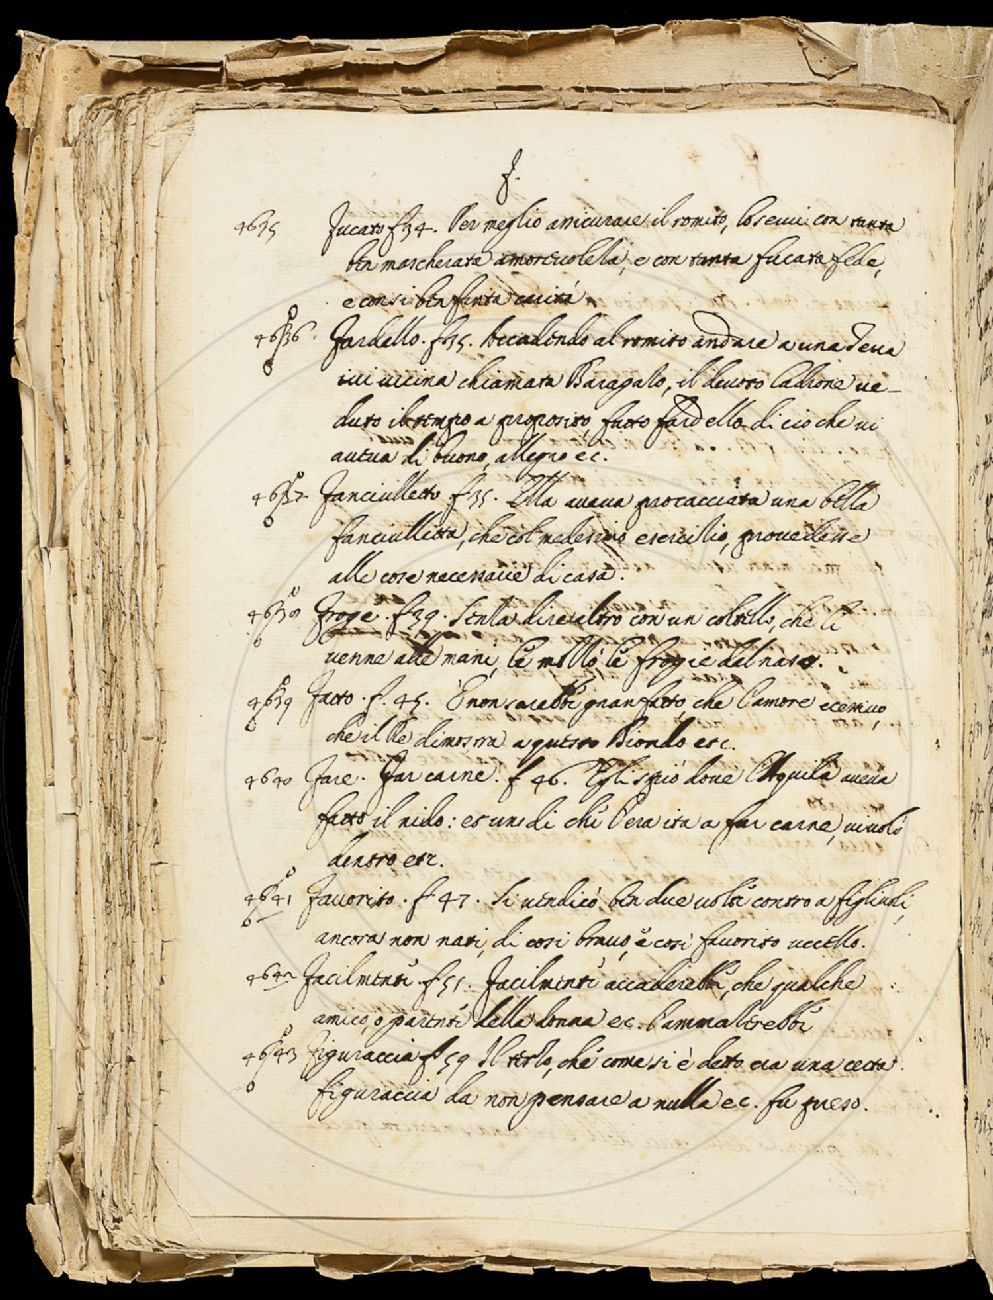 f.
4635 Fucato f. 34. Per meglio assicurare il romito, lo servì con tanta
ben mascherata amorevolezza, e con tanta fucata fede,
e con sì ben finta carità.
4636. Fardello. f. 35. Accadendo al romito andare a una Terra
ivi vicina chiamata Baragalo, il devoto ladrone ve-
duto il tempo a proposito, fatto fardello di ciò che vi
aveva di buono, allegro ec.
4637 Fanciulletta f. 35. Ella aveva procacciata una bella
fanciulletta, che col medesimo esercizio, provedesse
alle cose necessarie di casa.
4638. Froge. f. 39. Senza dire altro con un coltello, che li
venne alle mani, le mozzò le frogie del naso.
4639 Fatto. f. 45. E non sarebbe gran fatto, che l'amore eccessivo,
che il Re dimostra a questo Biondo etc.
4640 Fare. Far carne. f. 46. Egli spiò dove l'Aquila aveva
fatto il nido: et un dì che l'era ita a far carne, vi volò
dentro etc.
4641 Favorito. f. 47. Si vendicò ben due volte contro a figliuoli,
ancora non nati, di così bravo, e così favorito uccello.
4642 Facilmente f. 51. Facilmente accaderebbe, che qualche
amico, o parente della donna ec. l'ammazzerebbe
4643 Figuraccia f. 59 Il terzo, che come si è detto era una certa
figuraccia da non pensare a nulla ec. fu preso.